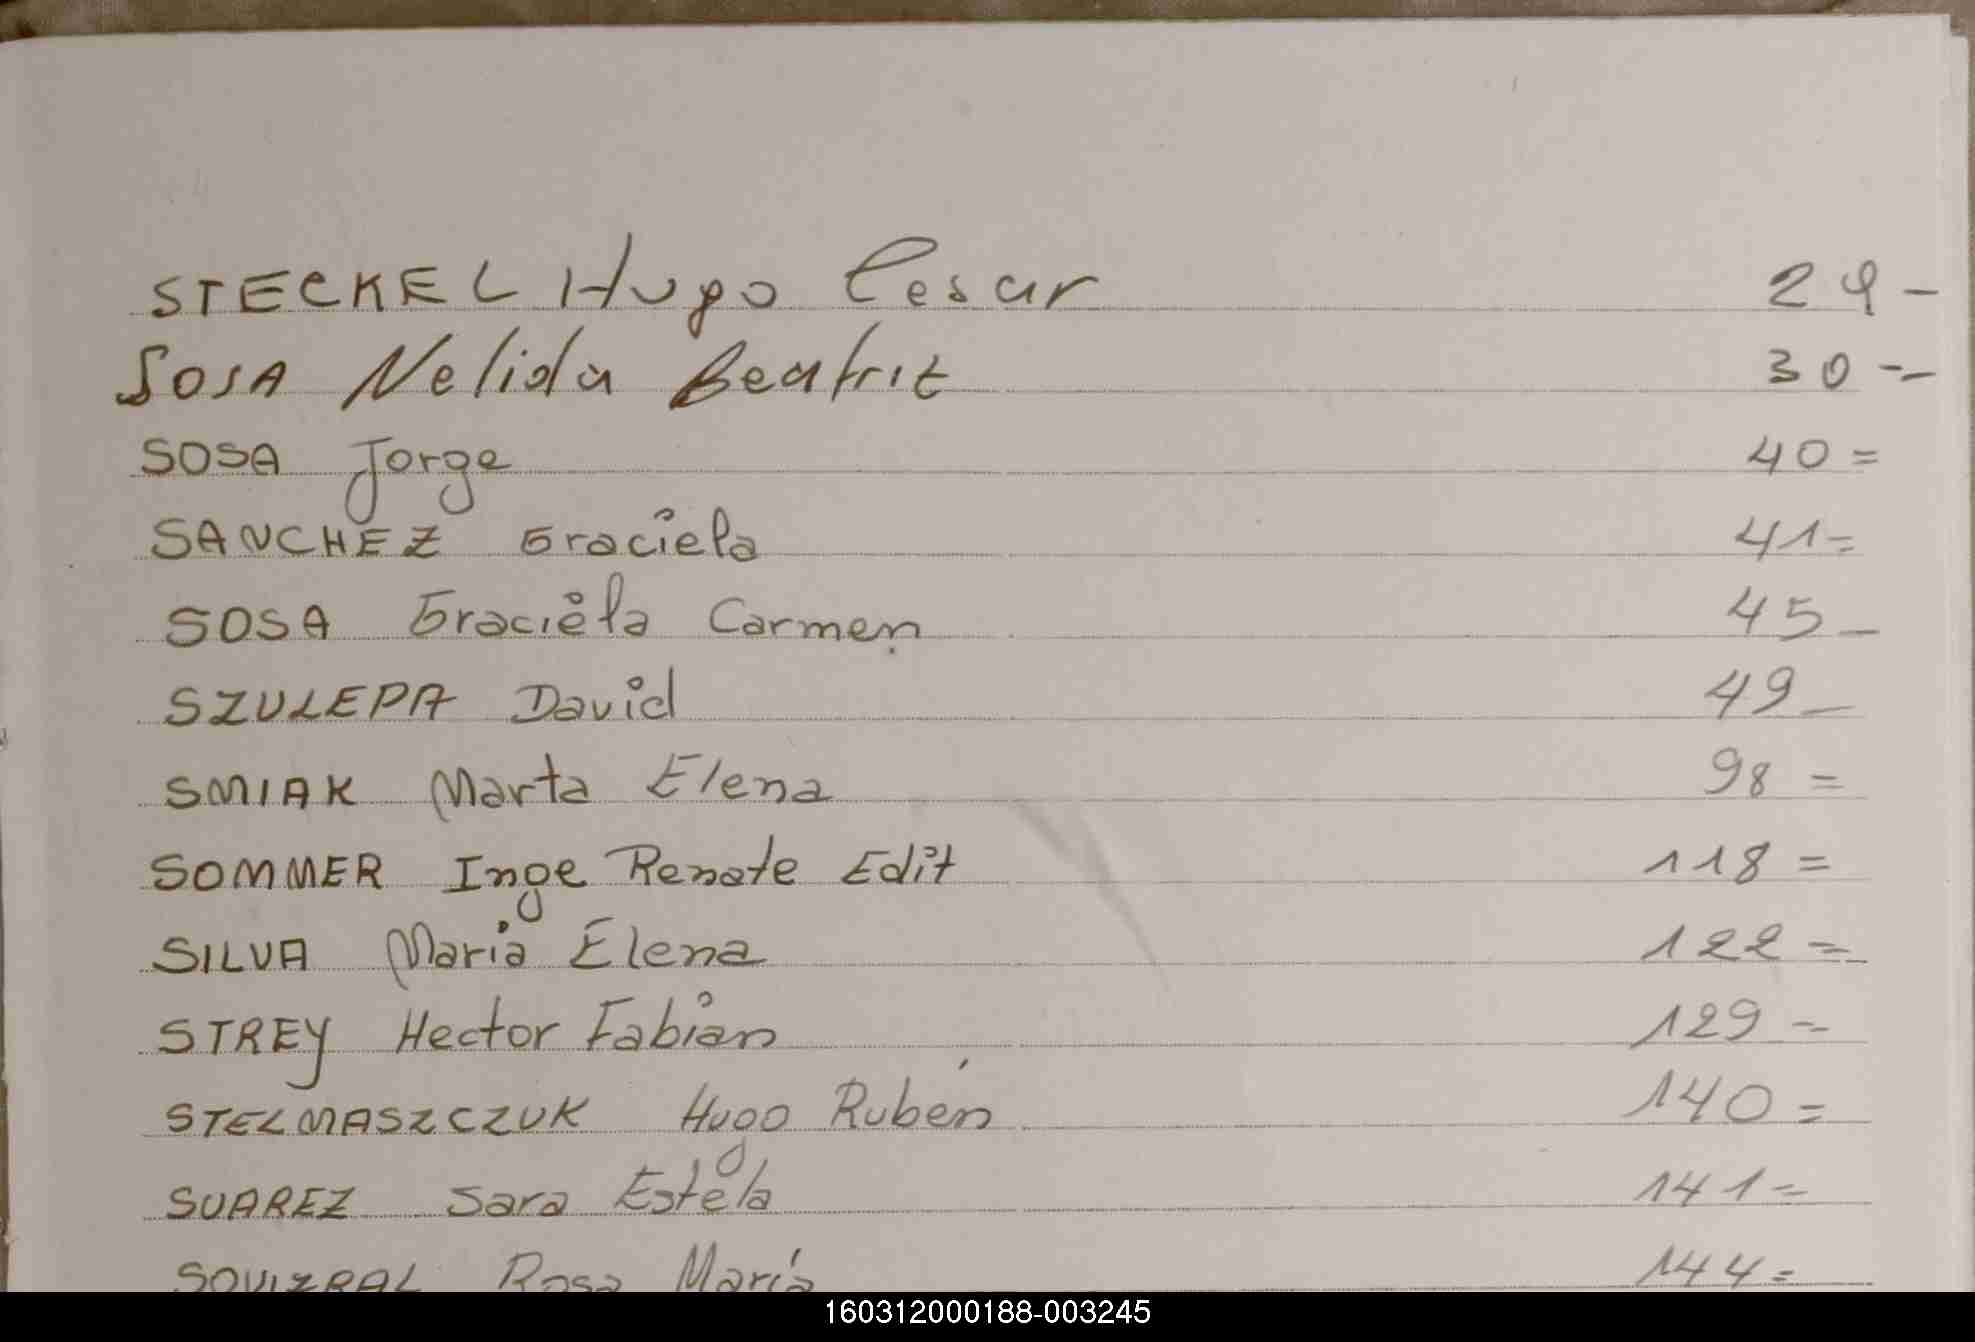 STECKEL Hugo Cesar 29-
SOSA Nelida Beatriz 30--
SOSA Jorge 40=
SANCHEZ Graciela 41=
SOSA Graciela Carmen 45-
SZULEPA David 49-
SMIAK Marta Elena 98=
SOMMER Inge Renate Edit 118=
SILVA Maria Elena 122=
STREY Hector Fabian 129=
STELMASZCZUK Hugo Rubén 140=
SUAREZ Sara Estela 141=
SOVIZRAL Rosa María 144=
160312000188-003245